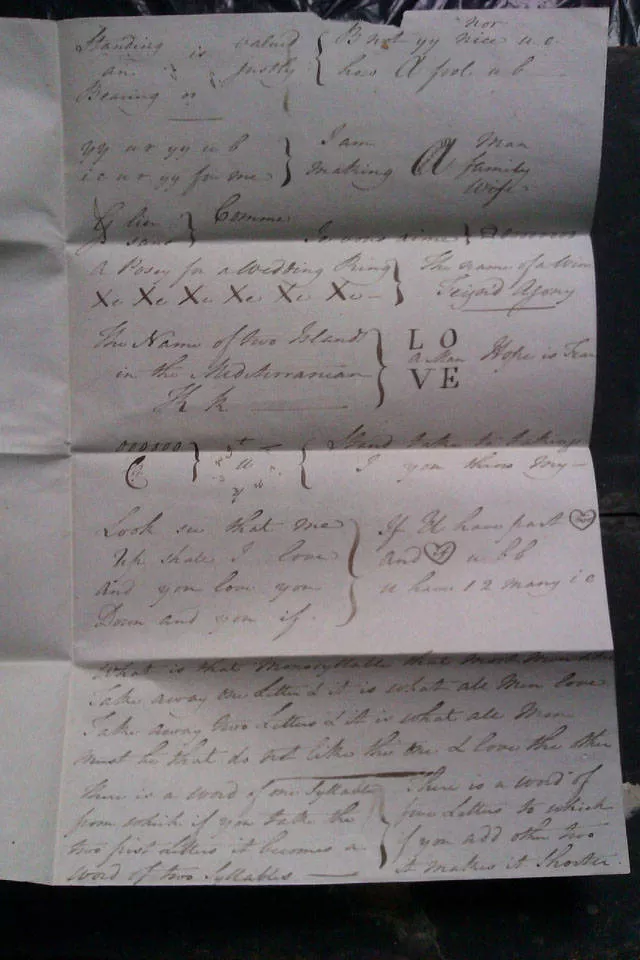 Standing is valued
an justly
Bearing or
nor
B not yy nice u c
how A fool u b
yy u r yy u b
i c u r yy for me
I am
making
A
Man
family
Wife
lieu
sous
Comme
A Posey for a Wedding Ring
Xc Xc Xc Xc Xc Xc
The name of a
Feign'd Agony
The Name of two Islands
in the Mediterranean
K k
LO
a Man
VE
Hope is
Stand take to takings
I you throw my
Look see that me
Up shall I love
And you love you
Down and you if
If U have past
and u b b
u have 1 2 many i c
What is that Monosyllable that most men
Take away one Letter & it is what all Men love
Take away two Letters & it is what all Men
must be that do not like the one & love the other
There is a word of one Syllable
from which if you take the
two first Letters it becomes a
word of two Syllables
There is a word of
five Letters to which
if you add other two
it makes it Shorter